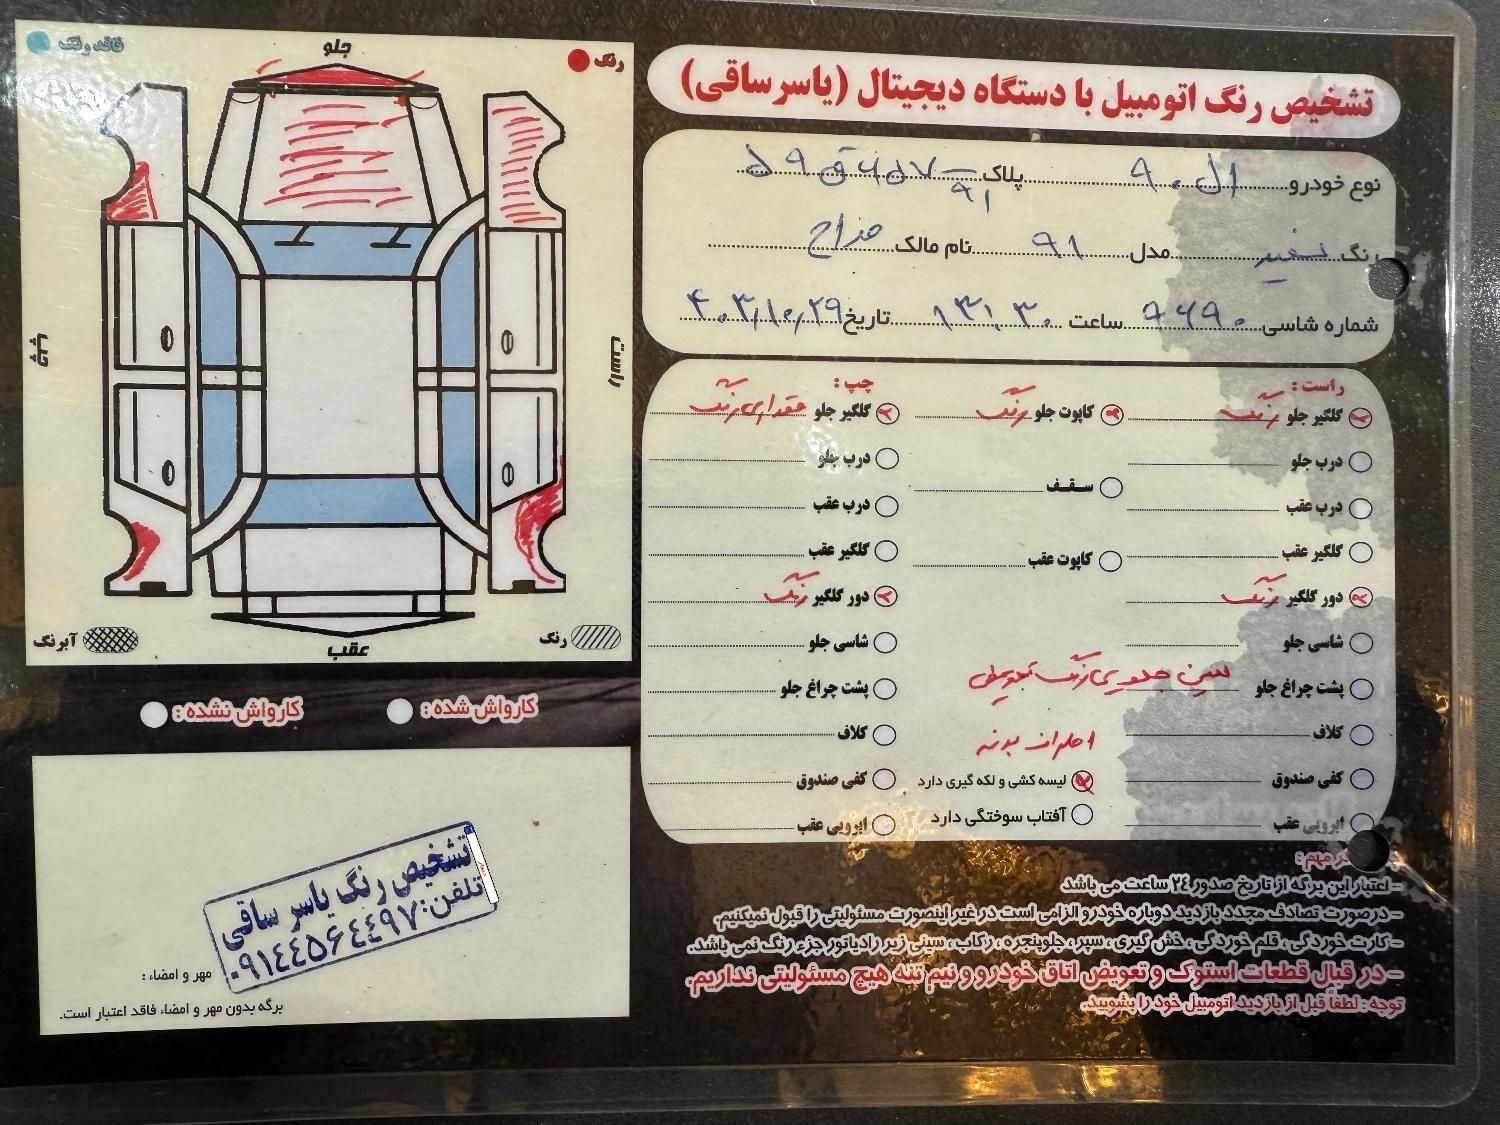 تشخیص رنگ اتومبیل با دستگاه دیجیتال (یاسر ساقی)
نوع خودرو ال ۹۰ پلاک ۵۹ ق ۶۵۷ ۹۱
رنگ سفید مدل ۹۱ نام مالک مداح
شماره شاسی ۹۶۹۰ ساعت ۱۳،۳۰ تاریخ ۴۰۳،۱۰،۲۹
راست :
گلگیر جلو رنگ
درب جلو
درب عقب
گلگیر عقب
دور گلگیر رنگ
شاسی جلو
پشت چراغ جلو
کلاف
کفی صندوق
ابرویی عقب
کاپوت جلو رنگ
سـقـف
کاپوت عقب
سینی جلویی رنگ تعویضی
اطراف بدنه
لیسه کشی و لکه گیری دارد
آفتاب سوختگی دارد
چپ :
گلگیر جلو مقداری رنگ
درب جلو
درب عقب
گلگیر عقب
دور گلگیر رنگ
شاسی جلو
پشت چراغ جلو
کلاف
کفی صندوق
ابرویی عقب
مهم:
– اعتبار این برگه از تاریخ صدور ۲۴ ساعت می باشد
– درصورت تصادف مجدد بازدید دوباره خودرو الزامی است در غیر اینصورت مسئولیتی را قبول نمیکنیم.
– کارت خوردگی، قلم خوردگی، خش گیری، سپر، جلوپنجره، رکاب، سینی زیر رادیاتور جزء رنگ نمی باشد.
– در قبال قطعات استوک و تعویض اتاق خودرو و نیم تنه هیچ مسئولیتی نداریم.
توجه : لطفاً قبل از بازدید اتومبیل خود را بشویید.
رنگ
فاقد رنگ
جلو
راست
چپ
عقب
رنگ
آبرنگ
کارواش شده :
کارواش نشده :
تشخیص رنگ یاسر ساقی
تلفن: ۰۹۱۴۴۵۶۴۴۹۷
مهر و امضاء :
برگه بدون مهر و امضاء فاقد اعتبار است.